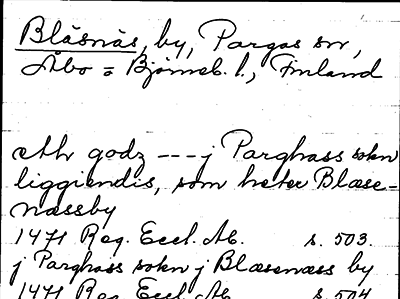 Bläsnäs, by, Pargas sn,
Åbo = Björneb. l., Finland
eth godz --- j Parghass sokn
liggiendis, som heter Blæse-
næssby
1471 Reg. Eccl. Ab. s. 503.
j Parghass sokn j Blæsenæss by
1471 Reg. Eccl. Ab. s. 504